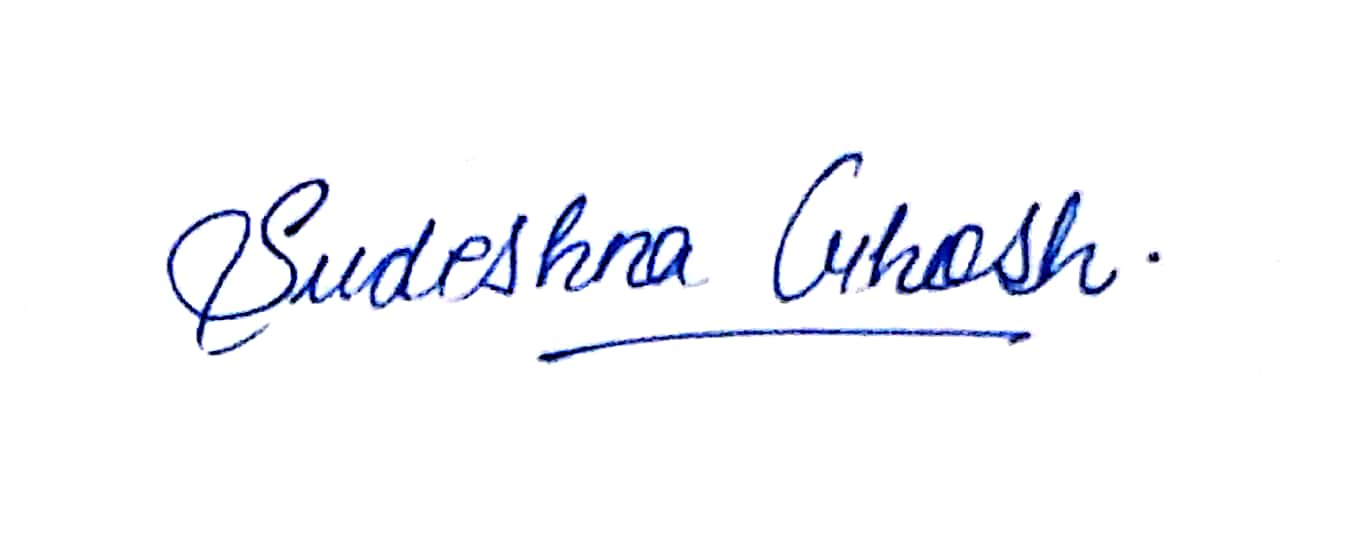 Sudeshna Ghosh.